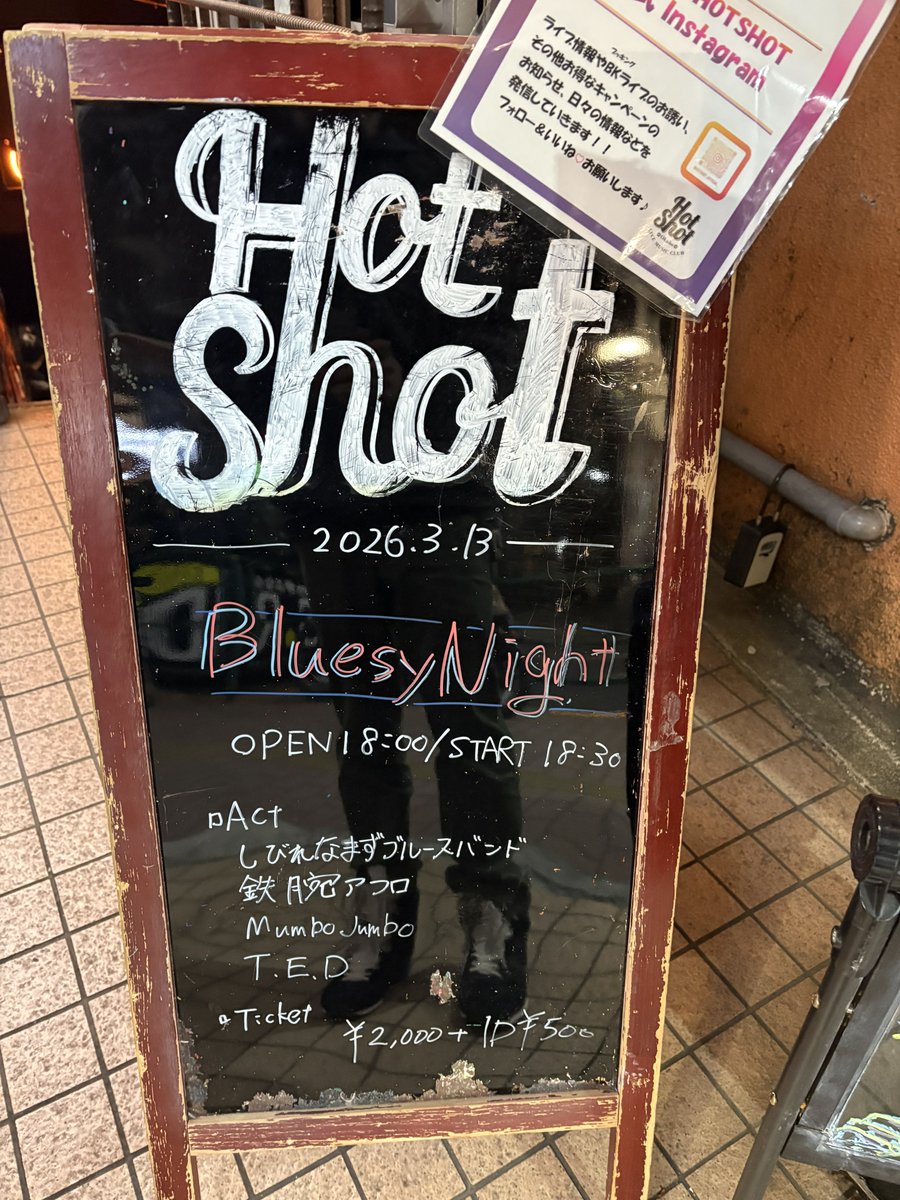 HOTSHOT
Instagram
ライブ情報やBKライブのお誘い、
ブッキング
その他お得なキャンペーンの
お知らせ、日々の情報などを
発信していきます！！
フォロー＆いいね♡お願いします♪
Hot
Shot
Hot
Shot
2026.3.13
Bluesy Night
OPEN 18:00/START 18:30
Act
しびれなまずブルースバンド
鉄腕アフロ
Mumbo Jumbo
T.E.D
Ticket
¥2,000+1D¥500